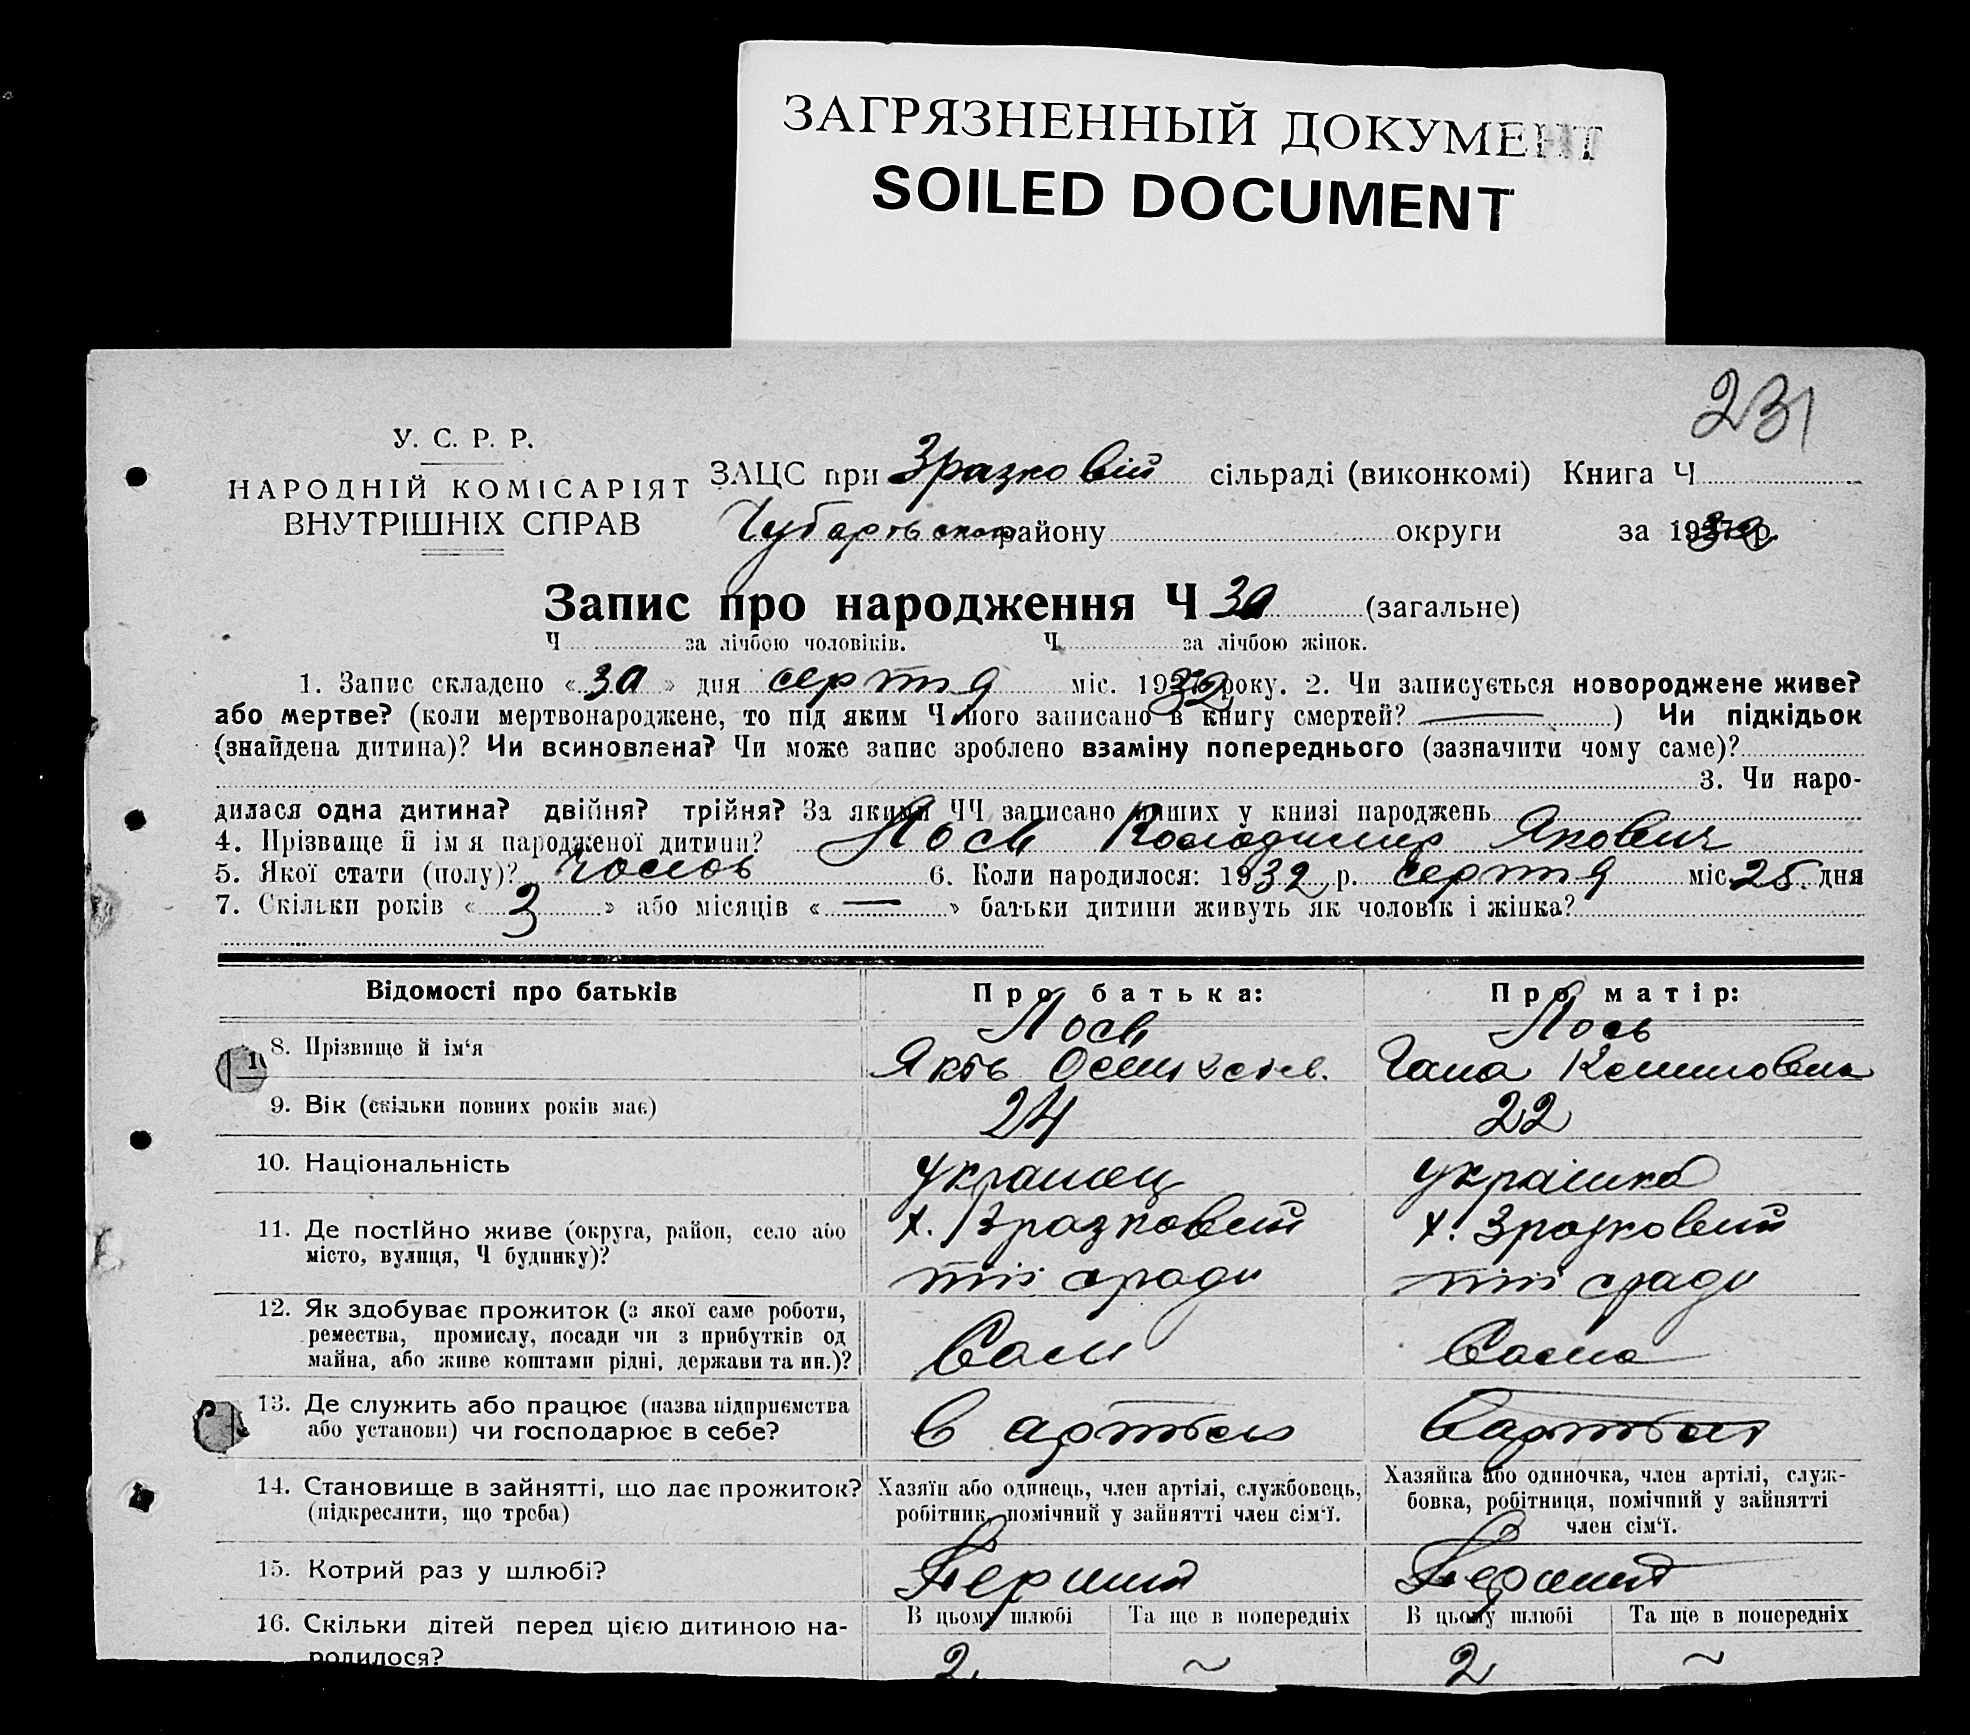 ЗАГРЯЗНЕННЫЙ ДОКУМЕНТ
SOILED DOCUMENT
231
У. С. Р. Р.
НАРОДНІЙ КОМІСАРІЯТ
ВНУТРІШНІХ СПРАВ
ЗАЦС при Зразковій сільраді (виконкомі) Книга Ч
району округи за 1932 р.
Запис про народження Ч 30 (загальне)
Ч за лічбою чоловіків. Ч. за лічбою жінок.
1. Запис складено « 30 » дня серпня міс. 1932 року. 2. Чи записується новороджене живе?
або мертве? (коли мертвонароджене, то під яким Ч його записано в книгу смертей? — ) Чи підкідьок
(знайдена дитина)? Чи всиновлена? Чи може запис зроблено взаміну попереднього (зазначити чому саме)?
3. Чи наро-
дилася одна дитина? двійня? трійня? За якими ЧЧ записано инших у книзі народжень
4. Прізвище й ім я народженої дитини? Лось Володимир Якович
5. Якої стати (полу)? чолов 6. Коли народилося: 1932 р. серпня міс. 25 дня
7. Скільки років « 3 » або місяців « — » батьки дитини живуть як чоловік і жінка?
Відомості про батьків
Про батька:
Про матір:
8. Прізвище й ім‘я
Лось
Яків
Лось
Гана
9. Вік (скільки повних років має)
24
22
10. Національність
українец
українка
11. Де постійно живе (округа, район, село або
місто, вулиця, Ч будинку)?
х. Зразковий
тії сради
х. Зразковий
тії сради
12. Як здобуває прожиток (з якої саме роботи,
ремества, промислу, посади чи з прибутків од
майна, або живе коштами рідні, держави та ин.)?
Сам
Сама
13. Де служить або працює (назва підприємства
або установи) чи господарює в себе?
в артілі
в артілі
14. Становище в зайнятті, що дає прожиток?
(підкреслити, що треба)
Хазяїн або одинець, член артілі, службовець,
робітник, помічний у зайнятті член сім‘ї.
Хазяйка або одиночка, член артілі, служ-
бовка, робітниця, помічний у зайнятті
член сім‘ї.
15. Котрий раз у шлюбі?
Перший
Перший
16. Скільки дітей перед цією дитиною на-
родилося?
В цьому шлюбі
Та ще в попередніх
В цьому шлюбі
Та ще в попередніх
2
~
2
~